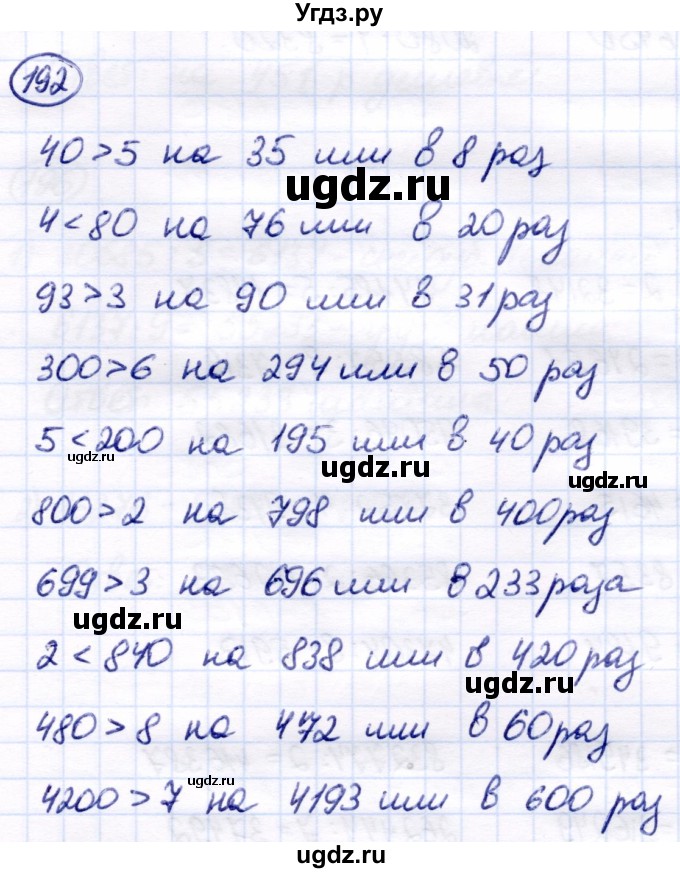 Угдз.ру
192
40>5 на 35 или в 8 раз
ugdz.ru
4<80 на 76 или в 20 раз
93>3 на 90 или в 31 раз
300>6 на 294 или в 50 раз
5<200 на 195 или в 40 раз
ugdz.ru
ugdz.ru
800>2 на 798 или в 400 раз
699>3 на 696 или в 233 раза
ugdz.ru
2<840 на 838 или в 420 раз
ugdz.ru
480>8 на 472 или в 60 раз
ugdz.ru
4200>7 на 4193 или в 600 раз
ugdz.ru